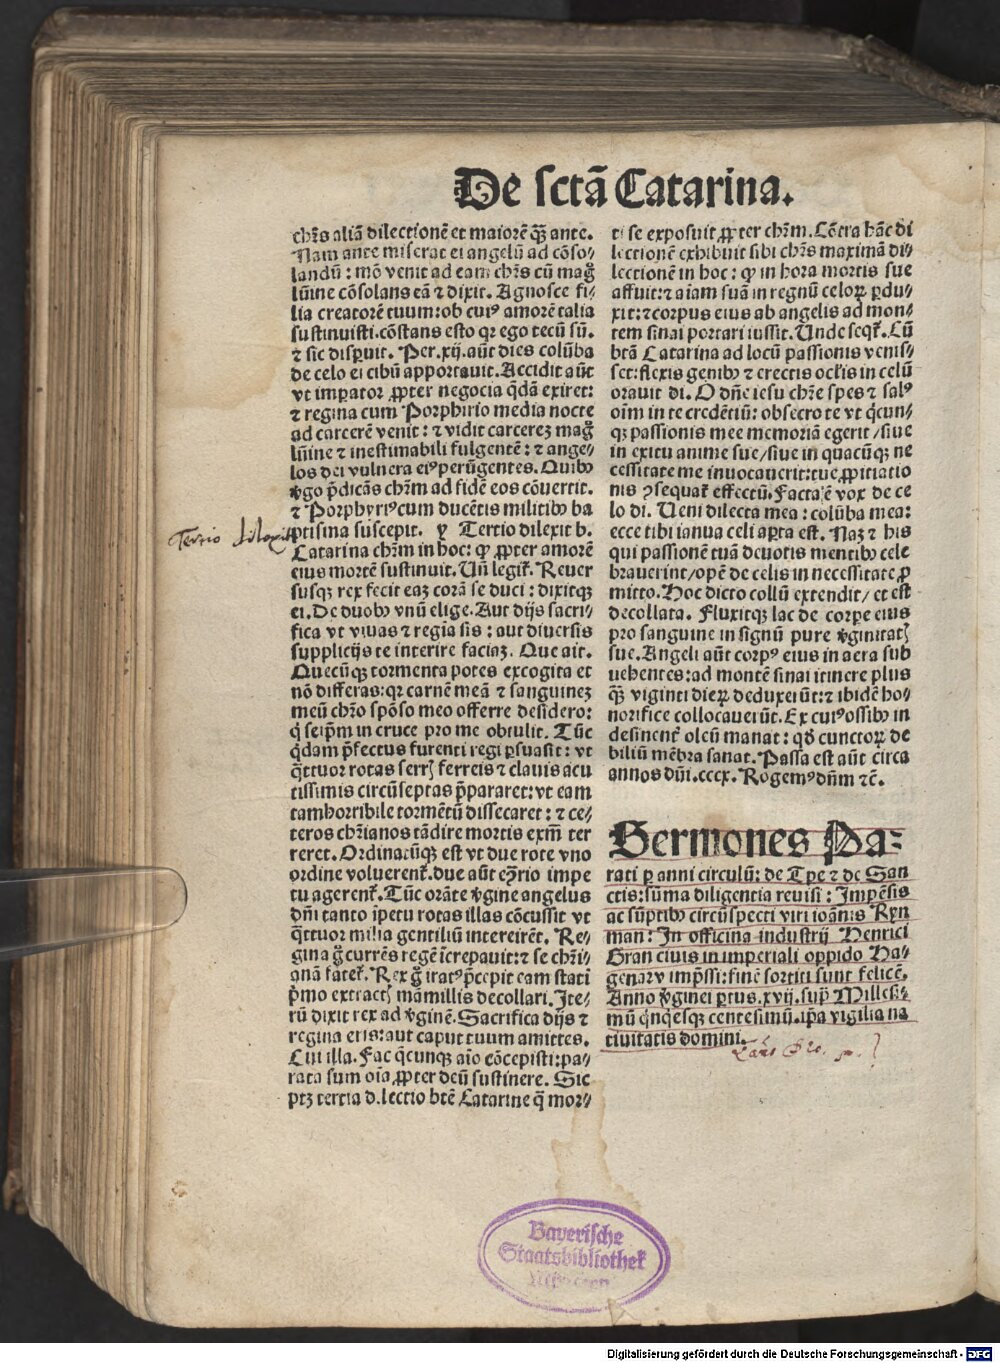 De sctã Catarina.
chr̃s aliã dilectionẽ et maiorẽ q̃ȝ ante.
Nam ante miserat ei angelũ ad cõso⸗
landũ: mõ venit ad eam chr̃s cũ mag̃
lũine cõsolans eã ⁊ dixit. Agnosce fi⸗
lia creatorẽ tuum: ob cuiꝰ amorẽ talia
sustinuisti. cõstans esto qꝛ ego tecũ sũ.
⁊ sic disꝑuit. Per .xij. aũt dies colũba
de celo ei cibũ apportauit. Accidit aũt
vt imꝑator ꝓpter negocia q̃dã exiret:
⁊ regina cum Porphirio media nocte
ad carcerẽ venit: ⁊ vidit carcereȝ mag̃
lũine ⁊ inestimabili fulgentẽ: ⁊ ange⸗
los dei vulnera eiꝰ perũgentes. Quibꝰ
v̾go p̃dicãs chr̃m ad fidẽ eos cõuertit.
⁊ Porphyriꝰ cum ducẽtis militibꝰ ba
ptisma suscepit. ꝩ Tertio dilexit b.
Catarina chr̃m in hoc: ꝙ ꝓpter amorẽ
eius mortẽ sustinuit. Uñ legiť. Reuer
susqȝ rex fecit eaȝ corã se duci: dixitqȝ
ei. De duobꝰ vnũ elige. Aut dijs sacri⸗
fica vt viuas ⁊ regia sis: aut diuersis
supplicijs te interire faciaȝ. Que ait.
Quecũqȝ tormenta potes excogita et
nõ differas: qꝛ carnẽ meã ⁊ sanguineȝ
meũ chr̃o spõso meo offerre desidero:
q̇ seip̃m in cruce pro me obtulit. Tũc
q̇dam p̃fectus furenti regi ꝑsuasit: vt
q̃ttuor rotas serr̃ ferreis ⁊ clauis acu
tissimis circũseptas p̃pararet: vt eam
tam horribile tormẽtũ dissecaret: ⁊ ce⸗
teros chr̃ianos tã dire mortis exm̃ ter
reret. Ordinatũqȝ est vt due rote vno
ordine voluerenť. due aũt cõ̾rio impe
tu agerenť. Tũc orãte v̾gine angelus
dñi tanto ĩpetu rotas illas cõcussit vt
q̃ttuor milia gentiliũ intereirẽt. Re⸗
gina g̃ currẽs regẽ ĩcrepauit: ⁊ se chr̃i⸗
anã fateť. Rex g̃ iratꝰ p̃cepit eam stati
p̃mo extract̃ mãmillis decollari. Ite⸗
rũ dixit rex ad v̾ginẽ. Sacrifica dijs ⁊
regina eris: aut caput tuum amittes.
Cui illa. Fac q̃cunqȝ aĩo cõcepisti: pa⸗
rata sum oĩa ꝓpter deũ sustinere. Sic
ptȝ tertia dilectio btẽ Catarine q̃ mor⸗
Tertio dilexit
ti se exposuit ꝓpter chr̃m. Cõtra hãc di
lectionẽ exhibuit sibi chr̃s maximã di⸗
lectionẽ in hoc: ꝙ in hora mortis sue
affuit: ⁊ aĩam suã in regnũ celoꝝ ꝑdu⸗
xit: ⁊ corpus eius ab angelis ad mon⸗
tem sinai portari iussit. Unde seqť. Cũ
btã Catarina ad locũ passionis venis⸗
set: flexis genibꝰ ⁊ erectis oculis in celũ
orauit di. O dñe iesu chr̃e spes ⁊ salꝰ
oĩm in te credẽtiũ: obsecro te vt q̇cun⸗
qȝ passionis mee memoriã egerit / siue
in exitu anime sue / siue in quacũqȝ ne
cessitate me inuocauerit: tue ꝓpitiatio
nis ꝯsequať effectũ. Facta ẽ vox de ce
lo di. Ueni dilecta mea: colũba mea:
ecce tibi ianua celi aꝑta est. Naȝ ⁊ his
qui passionẽ tuã deuotis mentibꝰ cele
brauerint / opẽ de celis in necessitate ꝓ
mitto. Hoc dicto collũ extendit / et est
decollata. Fluxitqȝ lac de corpe eius
pro sanguine in signũ pure v̾ginitat̃
sue. Angeli aũt corpꝰ eius in aera sub
uehentes: ad montẽ sinai itinere plus
q̃ȝ viginti dieꝝ deduxerũt: ⁊ ibidẽ ho⸗
norifice collocauerũt. Ex cuiꝰ ossibꝰ in
desinenť oleũ manat: qđ cunctoꝝ de
biliũ mẽbra sanat. Passa est aũt circa
annos dñi .cccx. Rogemꝰ dñm ⁊c̃.
Sermones Pa⸗
rati ꝑ anni circulũ: de Tp̃e ⁊ de San
ctis: sũma diligentia reuisi: Impẽsis
ac sũptibꝰ circũspecti viri ioãnis Ryn
man: In officina industrij Henrici
Gran ciuis in imperiali oppido Ha⸗
genaw imp̃ssi: finẽ sortiti sunt felicẽ.
Anno v̾ginei ꝑtus .xvij. sup̃ Millesi⸗
mũ q̇nq̇esqȝ centesimũ. ip̃a vigilia na
tiuitatis domini.
Bayerische
Staatsbibliothek
München
Digitalisierung gefördert durch die Deutsche Forschungsgemeinschaft - DFG